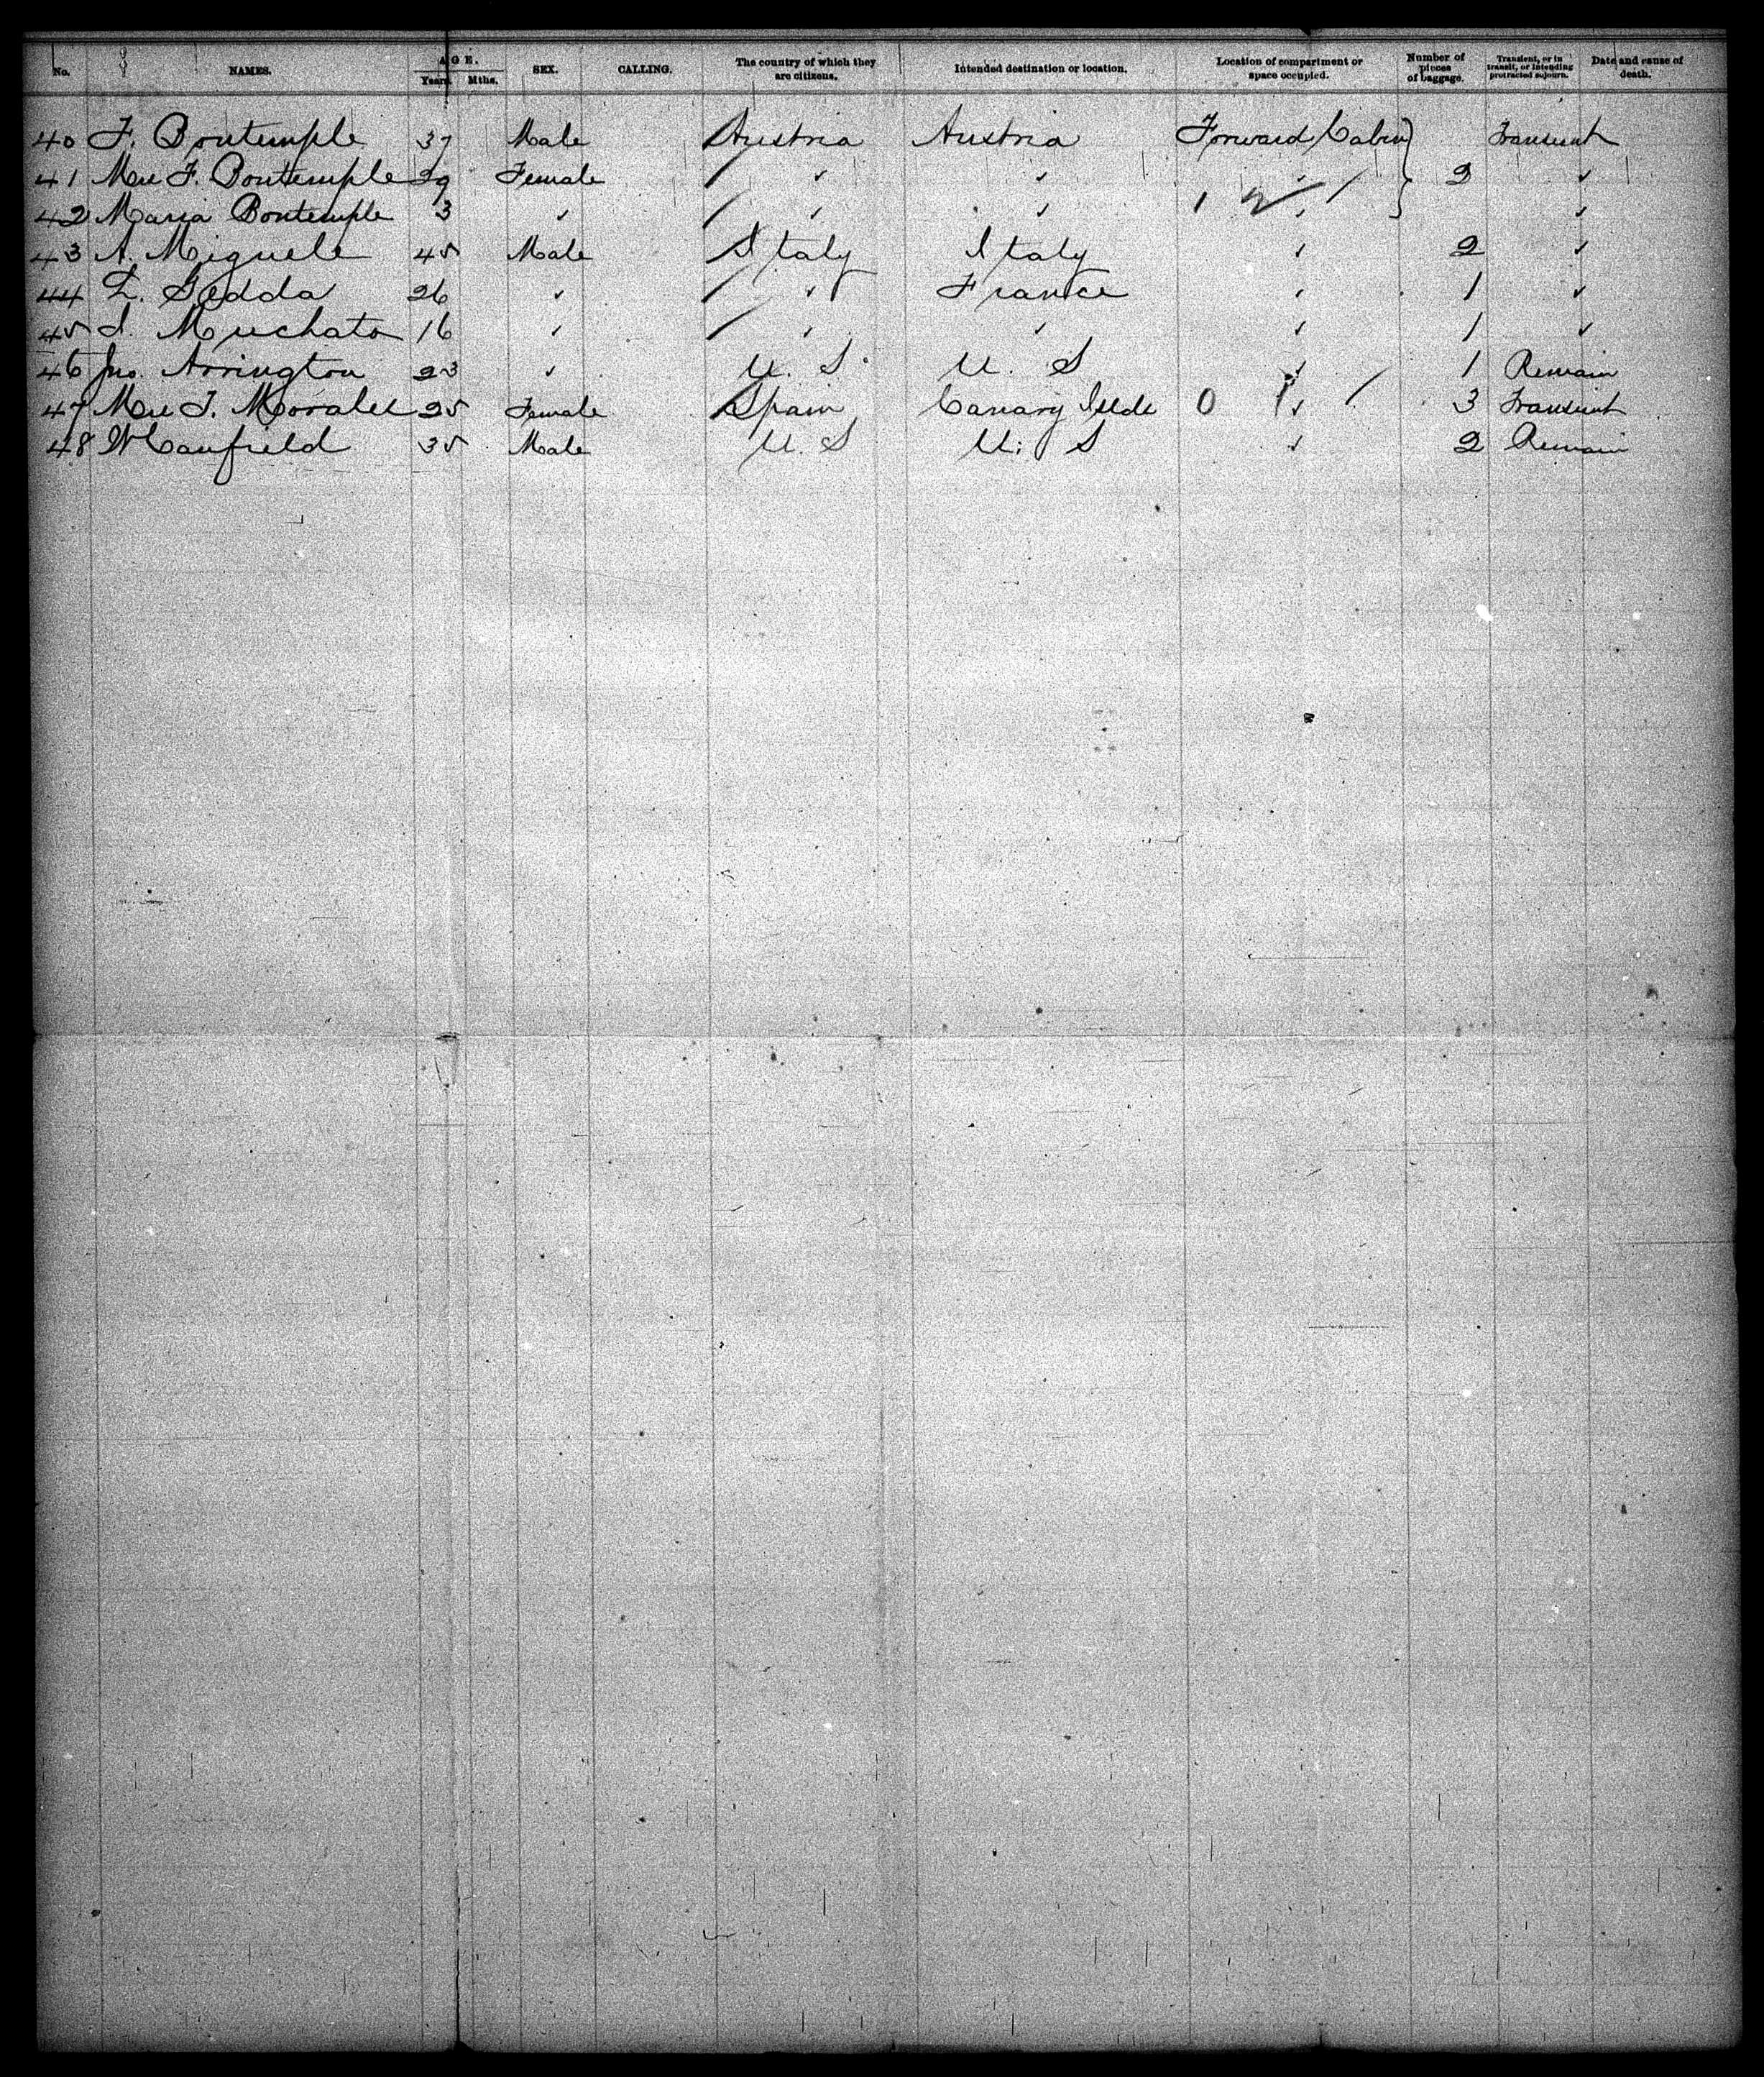 No. NAMES. AGE. Years Mths. SEX. CALLING. The country of which they are citizens. Intended destination or location. Location of compartment or space occupied. Number of pieces of baggage. Transient, or in transit, or intending protracted sojourn. Date and cause of death.
40 F. Bontemple 37 Male Austria Austria Forward Cabin Transient
41 Mrs F. Bontemple 29 Female ✓ ✓ ✓ 2 ✓
42 Maria Bontemple 3 ✓ ✓ ✓ 1 2 ✓ ✓
43 A. Miguele 45 Male Italy Italy ✓ 2 ✓
44 L. Gedda 26 ✓ ✓ France ✓ 1 ✓
45 Muchato 16 ✓ ✓ ✓ ✓ 1 ✓
46 Jno. Arrington 23 ✓ U. S. U. S ✓ 1 Remain
47 Mrs J. Morales 25 Female Spain Canary Islds 0 1 ✓ 3 Transient
48 Canfield 35 Male U. S U. S ✓ 2 Remain